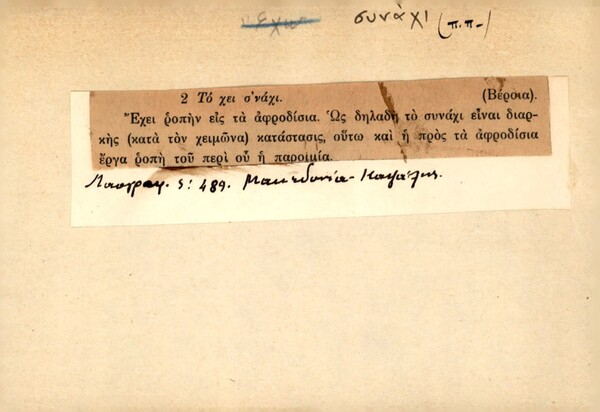 συνάχι (π.π-)
2 Τό χει σ'νάχι. (Βέροια).
Ἔχει ῥοπὴν εἰς τὰ ἀφροδίσια. Ὡς δηλαδὴ τὸ συνάχι εἶναι διαρ-
κὴς (κατὰ τὸν χειμῶνα) κατάστασις, οὕτω καὶ ἡ πρὸς τὰ ἀφροδίσια
ἔργα ῥοπὴ τοῦ περὶ οὗ ἡ παροιμία.
Λαογραφ. 5: 489. Μακεδονία-